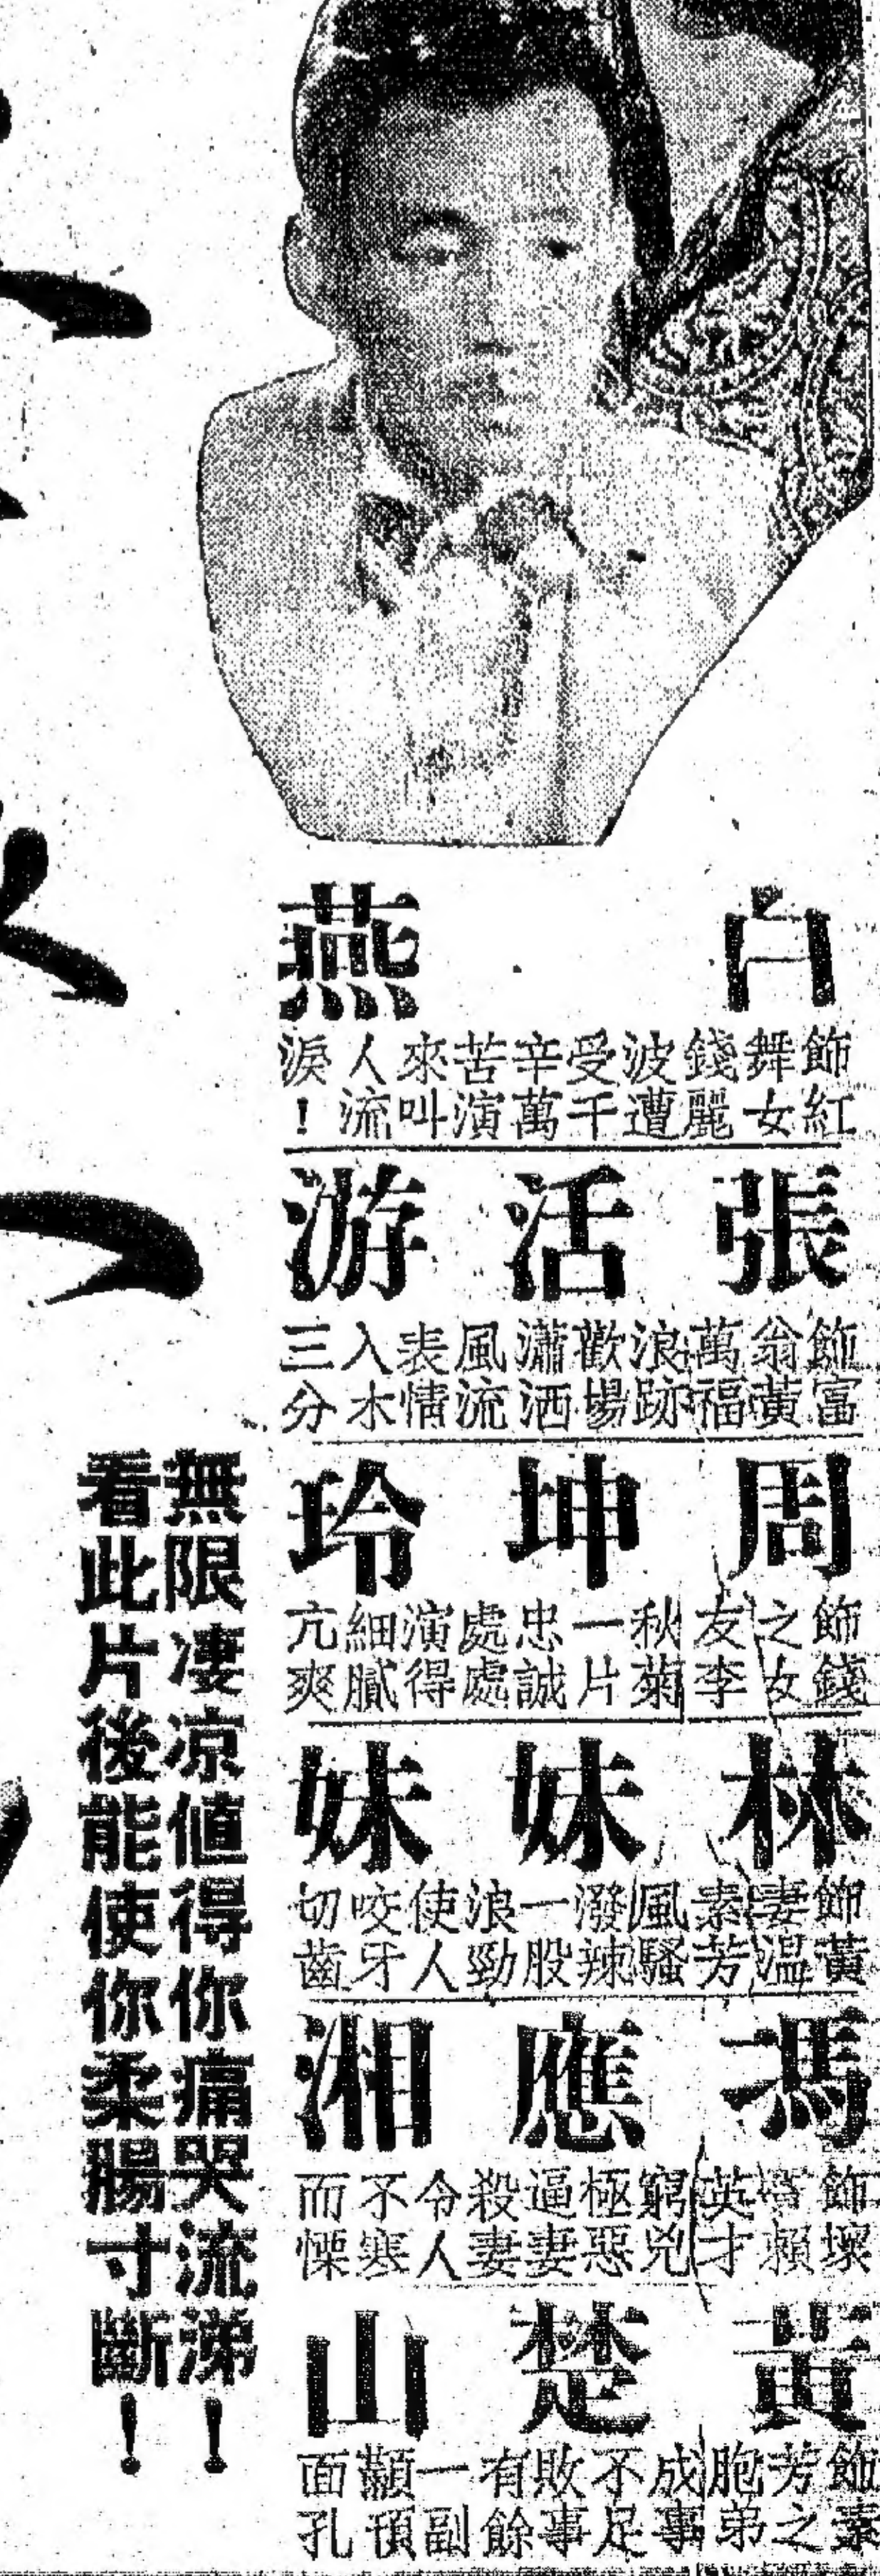 白燕
飾紅舞女錢麗波遭受千辛萬苦演來叫人流淚!
張活游
飾富翁黃萬福浪跡歡場瀟洒風流表情入木三分
周坤玲
飾錢之女友李秋菊一片忠誠處處演得細膩亢爽
林妹妹
飾黃妻溫素芳風騷潑辣一股浪勁使人咬牙切齒
馮應湘
飾壞賴英才窮兇極惡逼妻殺妻令人不寒而慄
黃楚山
飾素芳之胞弟成事不足敗事有餘一副顢頇面孔
無限凄凉值得你痛哭流涕!
看此片後能使你柔腸寸斷!